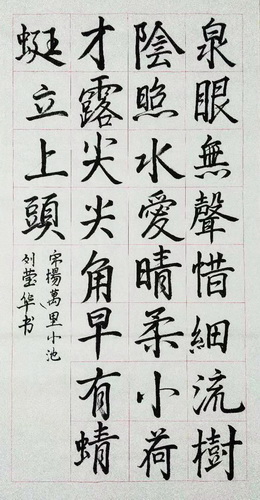 泉眼無聲惜細流樹
陰照水愛晴柔小荷
才露尖尖角早有蜻
蜓立上頭
宋楊萬里小池
刘莹华书